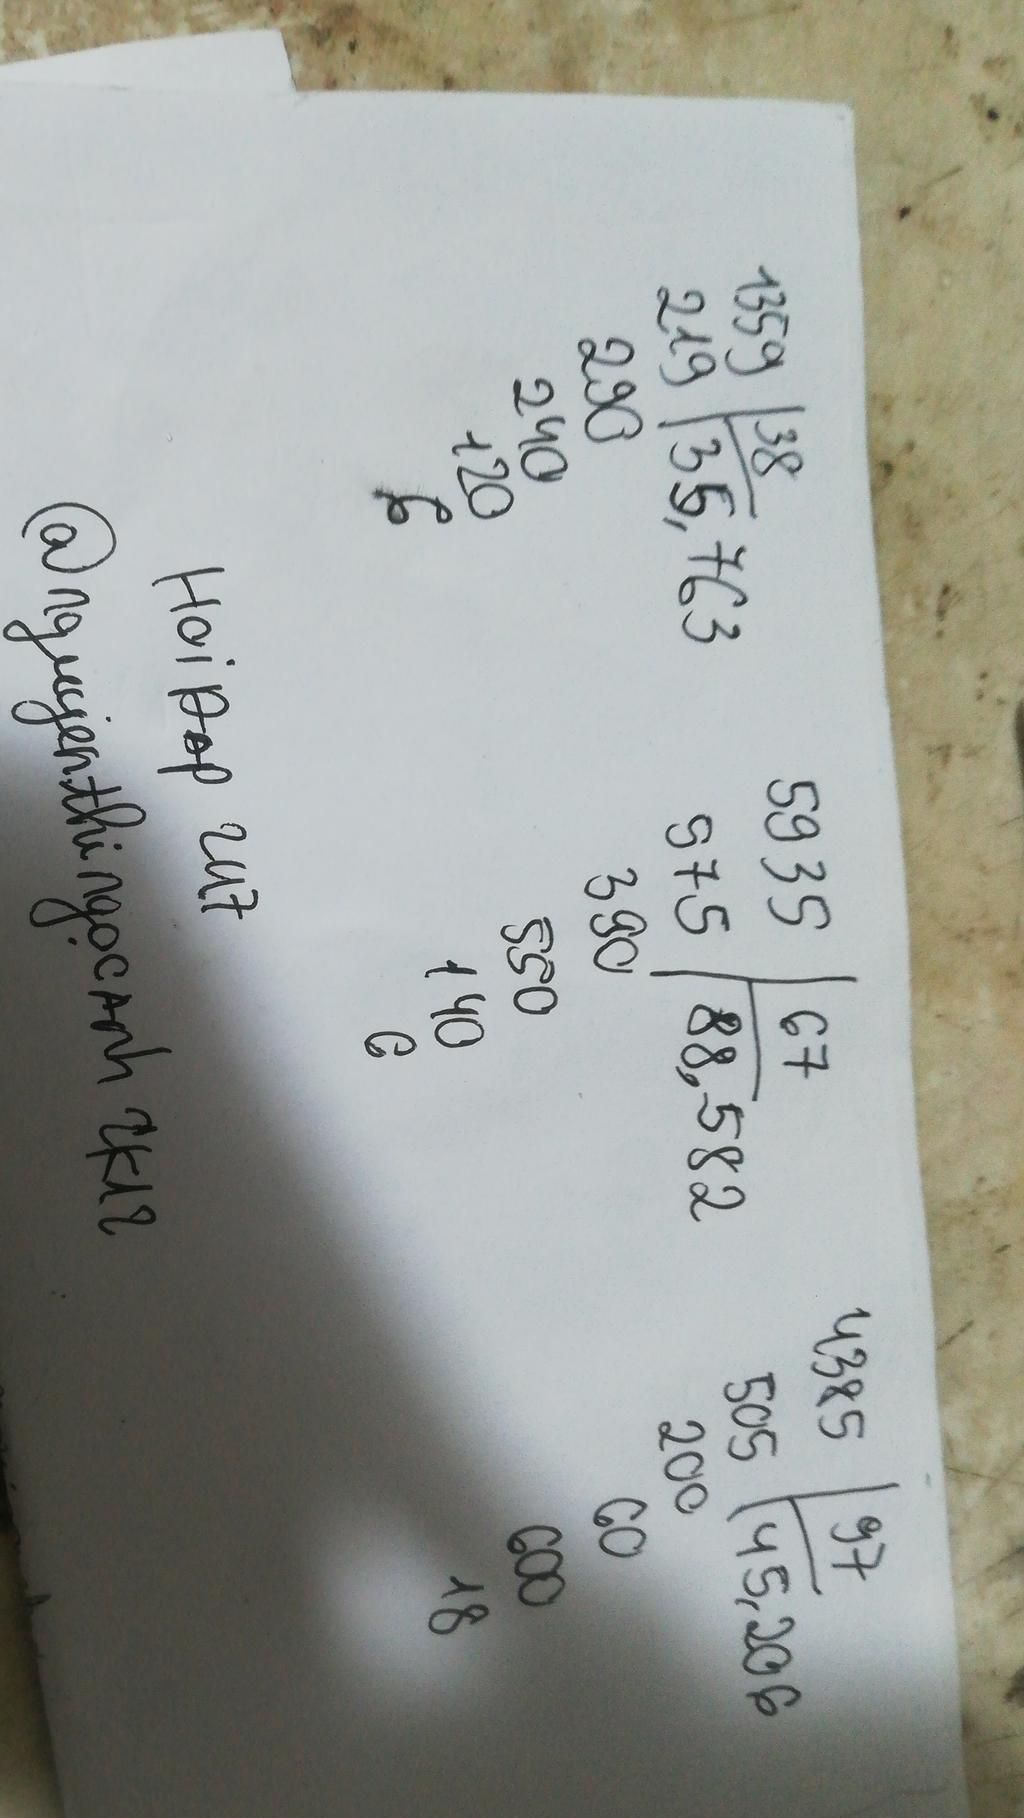 1359 38
219 35,763
290
240
120
6
5935 67
575 88,582
390
550
140
6
4385 97
505 45,206
200
60
600
18
HoiĐap 247
@nguyenthingocAnh2K12